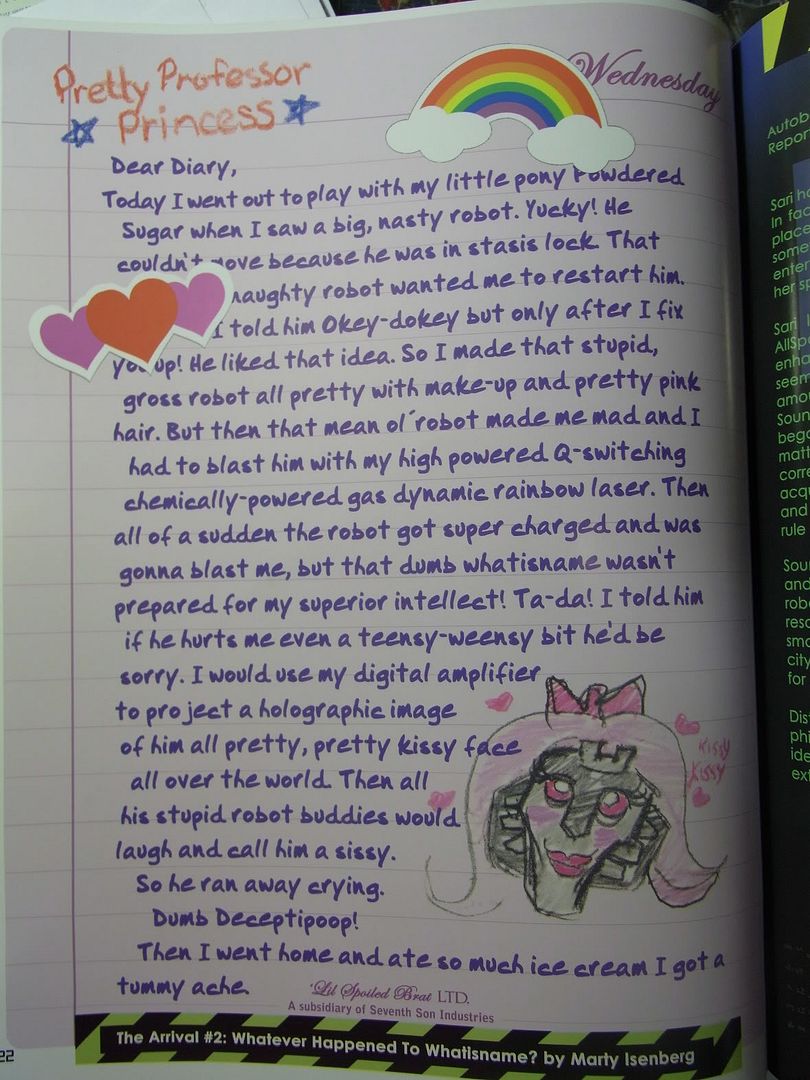 Pretty Professor
Princess
Wednesday
Dear Diary,
Today I went out to play with my little pony Powdered
Sugar when I saw a big, nasty robot. Yucky! He
couldn't move because he was in stasis lock. That
naughty robot wanted me to restart him.
I told him Okey-dokey but only after I fix
you up! He liked that idea. So I made that stupid,
gross robot all pretty with make-up and pretty pink
hair. But then that mean ol' robot made me mad and I
had to blast him with my high powered Q-switching
chemically-powered gas dynamic rainbow laser. Then
all of a sudden the robot got super charged and was
gonna blast me, but that dumb whatisname wasn't
prepared for my superior intellect! Ta-da! I told him
if he hurts me even a teensy-weensy bit he'd be
sorry. I would use my digital amplifier
to project a holographic image
of him all pretty, pretty kissy face
all over the world. Then all
his stupid robot buddies would
laugh and call him a sissy.
So he ran away crying.
Dumb Deceptipoop!
Then I went home and ate so much ice cream I got a
tummy ache.
Kissy
Kissy
'Lil Spoiled Brat LTD.
A subsidiary of Seventh Son Industries
The Arrival #2: Whatever Happened To WhatIsname? by Marty Isenberg
22
Autob
Repor
Sari ha
In fac
place
some
enter
her sp
Sari
AllSp
enha
seem
amou
Soun
bega
matt
corre
acqu
and
rule
Sou
and
robo
reso
smo
city
for
Dis
phi
ide
ext